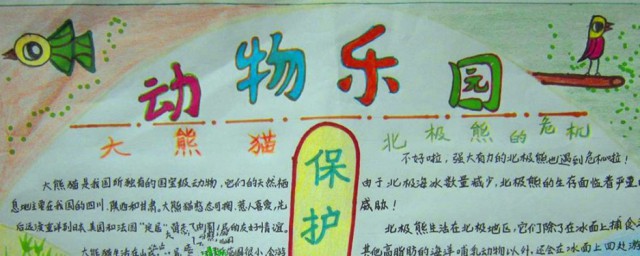 动物乐园
大熊猫
北极熊的危机
保护
大熊猫是我国所独有的国宝级动物，它们的天然栖
息地主要在我国的四川、陕西和甘肃。大熊猫憨态可掬，惹人喜爱，先
后远渡重洋到日本、美国和法国“定居”
的友好情谊。
大熊猫生活在
不好啦，强大有力的北极熊也遇到危机啦！
由于北极海冰数量减少，北极熊的生存面临着严重的
威胁！
北极熊生活在北极地区，它们除了在冰面上捕食
其他高脂肪的海洋哺乳动物以外，还会在冰面上四处游